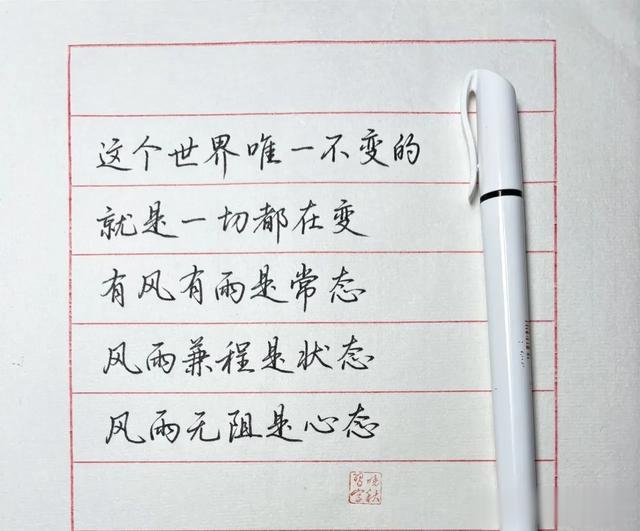 这个世界唯一不变的
就是一切都在变
有风有雨是常态
风雨兼程是状态
风雨无阻是心态